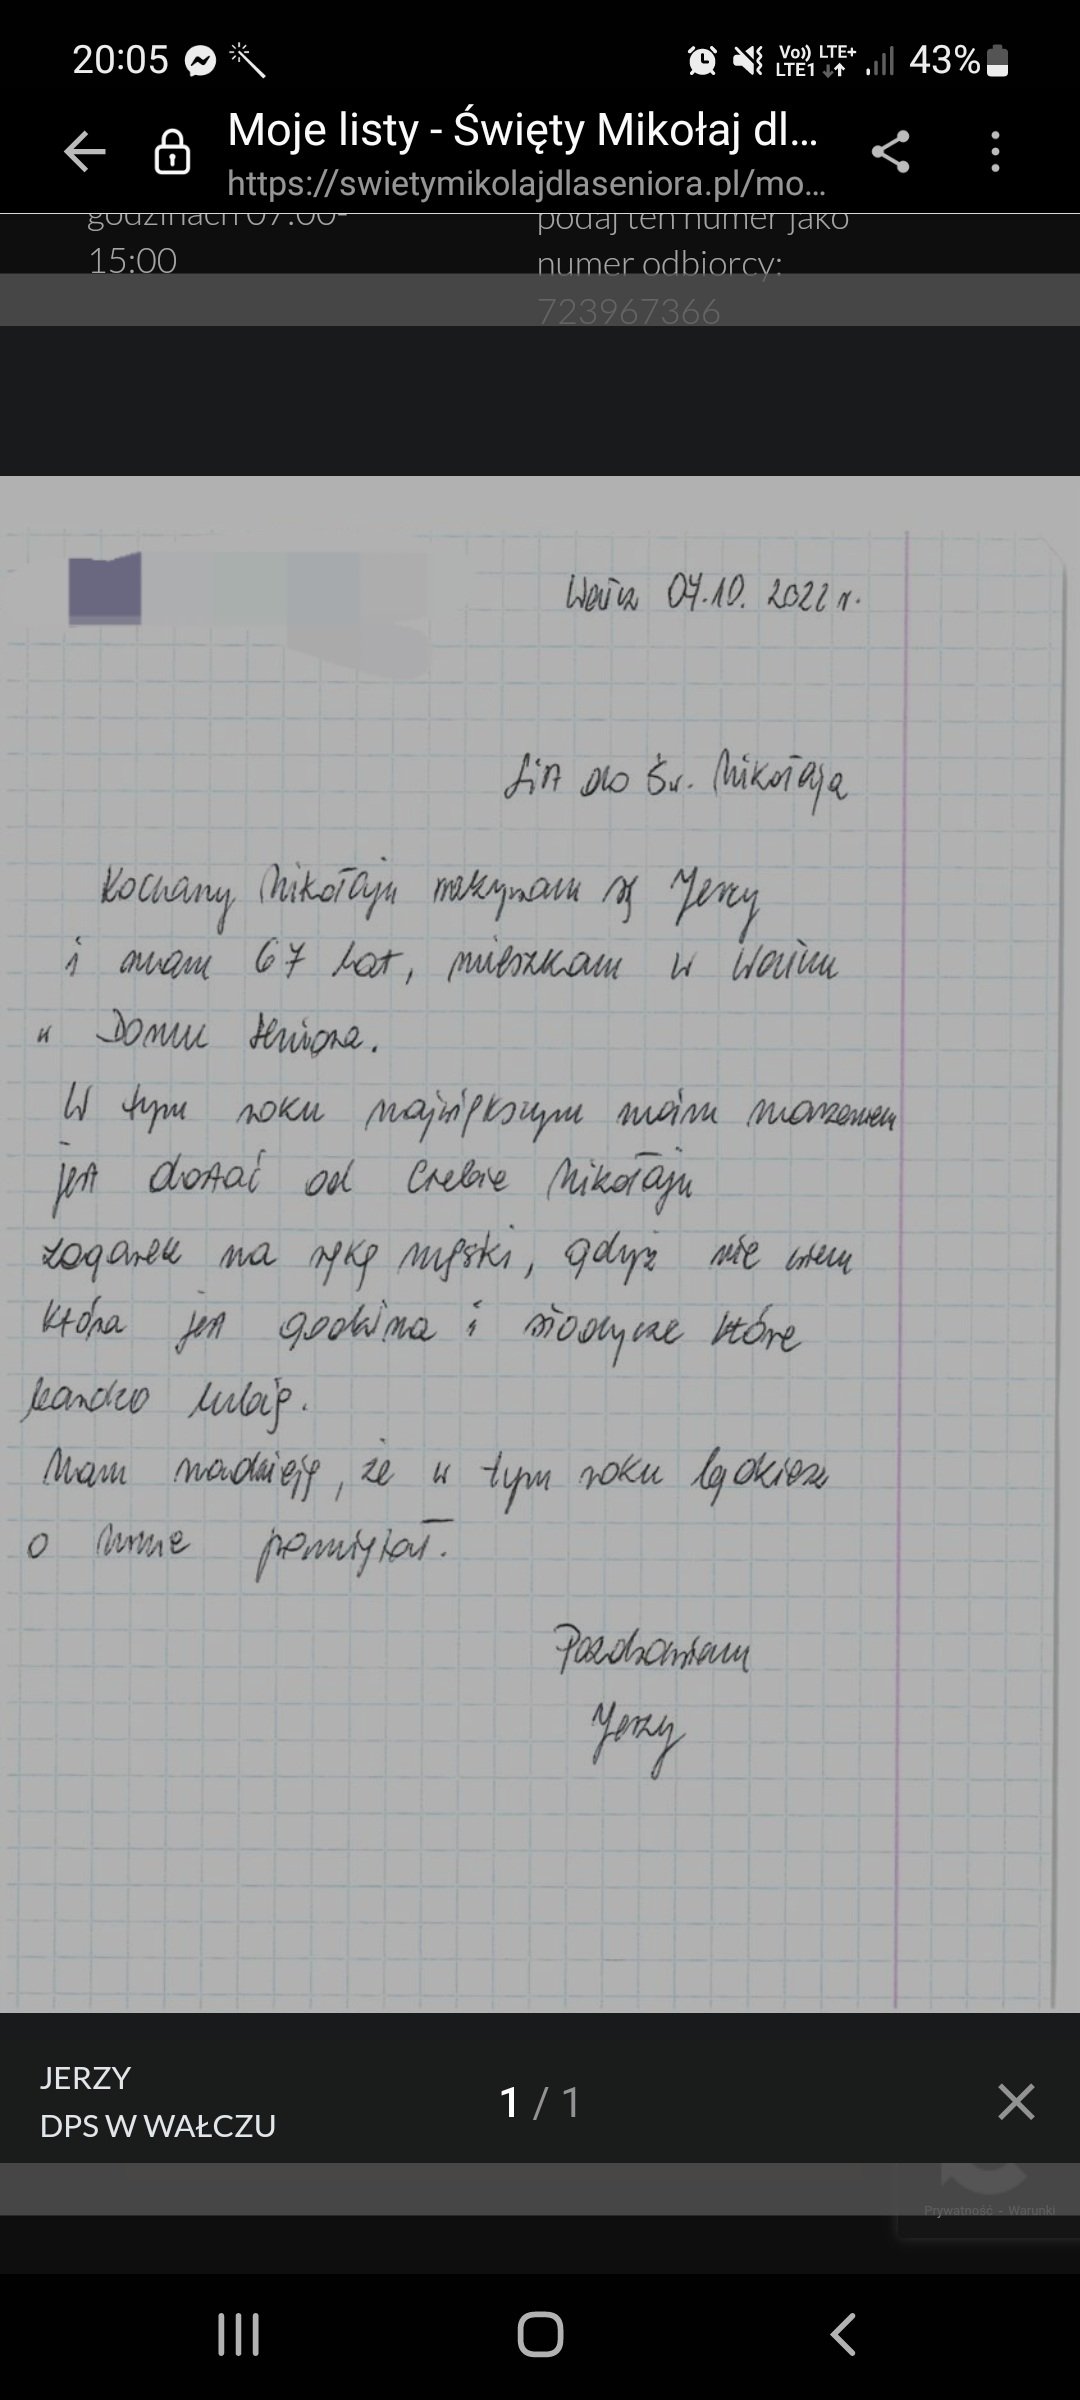 20:05
Vo)) LTE+
LTE1
43%
Moje listy - Święty Mikołaj dl...
https://swietymikolajdlaseniora.pl/mo...
godzinach 07:00-
15:00
podaj ten numer jako
numer odbiorcy:
723967366
Wałcz 04.10. 2022 r.
List do Św. Mikołaja
Kochany Mikołaju nazywam się Jerzy
i mam 67 lat, mieszkam w Wałczu
w Domu Seniora.
W tym roku największym moim marzeniem
jest dostać od Ciebie Mikołaju
zegarek na rękę męski, gdyż nie wiem
która jest godzina i słodycze które
bardzo lubię.
Mam nadzieję, że w tym roku będziesz
o mnie pamiętał.
Pozdrawiam
Jerzy
JERZY
DPS W WAŁCZU
1 / 1
Prywatność - Warunki